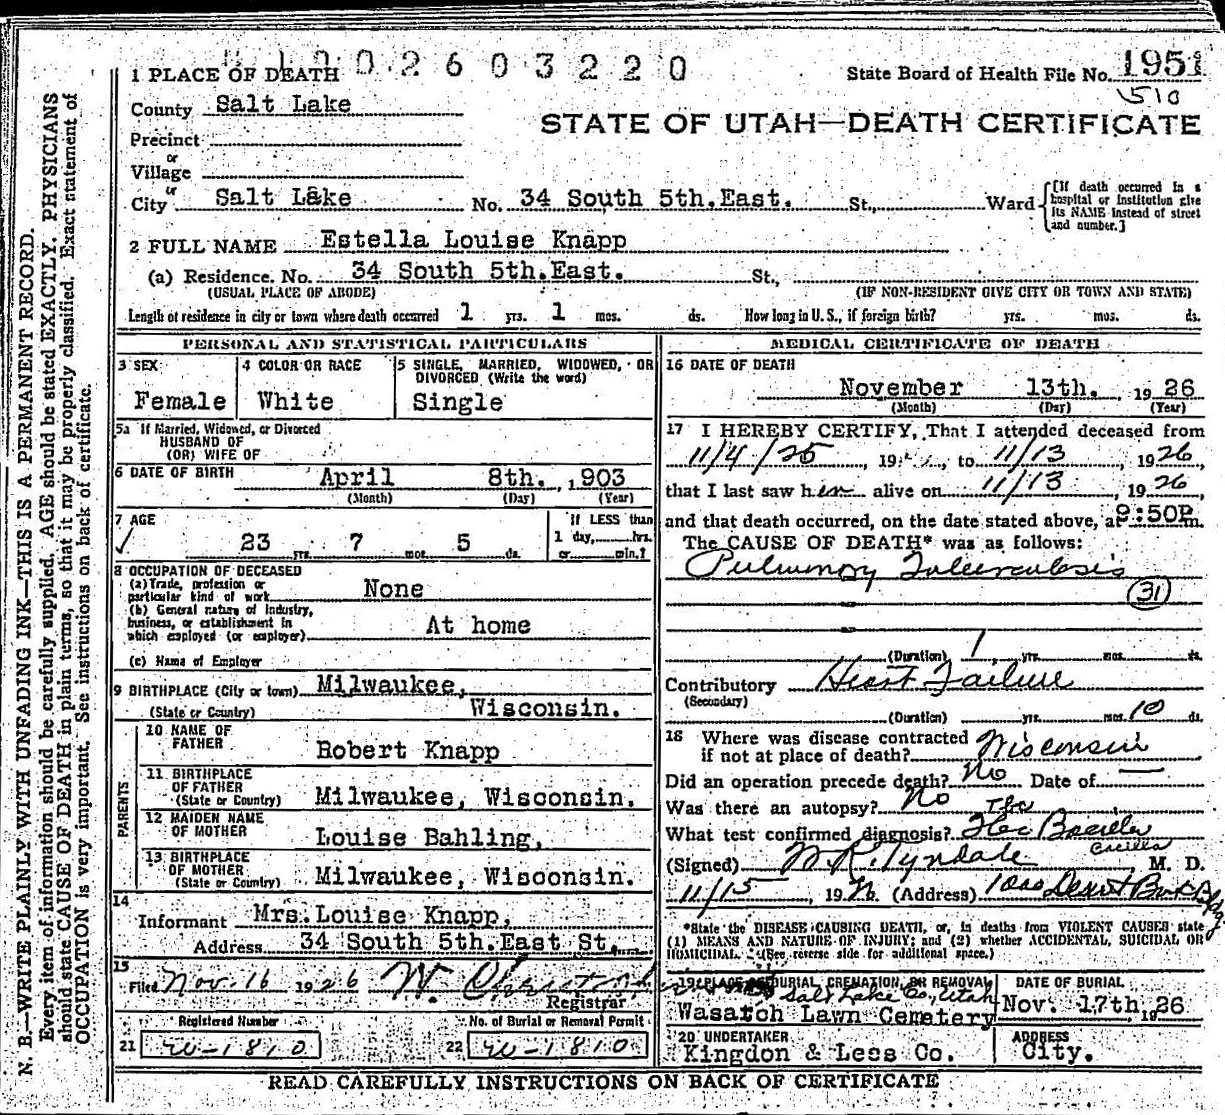 1002603220
1 PLACE OF DEATH
State Board of Health File No. 1951
1510
County Salt Lake
STATE OF UTAH—DEATH CERTIFICATE
Precinct
or
Village
or
City Salt Lake No. 34 South 5th.East. St., Ward [If death occurred in a hospital or institution give its NAME instead of street and number.]
2 FULL NAME Estella Louise Knapp
(a) Residence. No. 34 South 5th.East. St.,
(USUAL PLACE OF ABODE) (IF NON-RESIDENT GIVE CITY OR TOWN AND STATE)
Length of residence in city or town where death occurred 1 yrs. 1 mos. ds. How long in U. S., if foreign birth? yrs. mos. ds.
PERSONAL AND STATISTICAL PARTICULARS
3 SEX
Female
4 COLOR OR RACE
White
5 SINGLE, MARRIED, WIDOWED, OR
DIVORCED (Write the word)
Single
5a If Married, Widowed, or Divorced
HUSBAND OF
(OR) WIFE OF
6 DATE OF BIRTH April 8th. ,1903
(Month) (Day) (Year)
7 AGE
23 yrs. 7 mos. 5 ds.
If LESS than
1 day, hrs.
or min.?
8 OCCUPATION OF DECEASED
(a) Trade, profession or
particular kind of work None
(b) General nature of Industry,
business, or establishment in
which employed (or employer) At home
(c) Name of Employer
9 BIRTHPLACE (City or town) Milwaukee,
(State or Country) Wisconsin.
PARENTS
10 NAME OF
FATHER Robert Knapp
11 BIRTHPLACE
OF FATHER
(State or Country) Milwaukee, Wisconsin.
12 MAIDEN NAME
OF MOTHER Louise Bahling,
13 BIRTHPLACE
OF MOTHER
(State or Country) Milwaukee, Wisconsin.
14
Informant Mrs. Louise Knapp,
Address 34 South 5th.East St.
15
Filed Nov. 16 1926
Registrar
Registered Number No. of Burial or Removal Permit
21 W-1810 22 W-1810
MEDICAL CERTIFICATE OF DEATH
16 DATE OF DEATH
November 13th. 1926
(Month) (Day) (Year)
17 I HEREBY CERTIFY, That I attended deceased from
11/4/25, 19, to 11/13, 1926
that I last saw her alive on 11/13, 1926
and that death occurred, on the date stated above, at 9:50P m.
The CAUSE OF DEATH* was as follows:
Pulmonary Tuberculosis
31
(Duration) 1 yrs. mos. ds.
Contributory Heart Failure
(Secondary)
(Duration) yrs. mos. 10 ds.
18 Where was disease contracted
if not at place of death? Wisconsin
Did an operation precede death? No Date of —
Was there an autopsy? No
What test confirmed diagnosis? Tbc Bacilla
Bacilla
(Signed) W R Tyndale M. D.
11/15 1926 (Address) 1000 Deseret Bank Bldg
*State the DISEASE CAUSING DEATH, or, in deaths from VIOLENT CAUSES state
(1) MEANS AND NATURE OF INJURY; and (2) whether ACCIDENTAL, SUICIDAL OR
HOMICIDAL. (See reverse side for additional space.)
19 PLACE OF BURIAL, CREMATION, OR REMOVAL
Salt Lake Co, Utah
Wasatch Lawn Cemetery
DATE OF BURIAL
Nov. 17th, 1926
20 UNDERTAKER
Kingdon & Lees Co.
ADDRESS
City.
READ CAREFULLY INSTRUCTIONS ON BACK OF CERTIFICATE
N. B.—WRITE PLAINLY WITH UNFADING INK—THIS IS A PERMANENT RECORD.
Every item of information should be carefully supplied. AGE should be stated EXACTLY. PHYSICIANS
should state CAUSE OF DEATH in plain terms, so that it may be properly classified. Exact statement of
OCCUPATION is very important. See instructions on back of certificate.